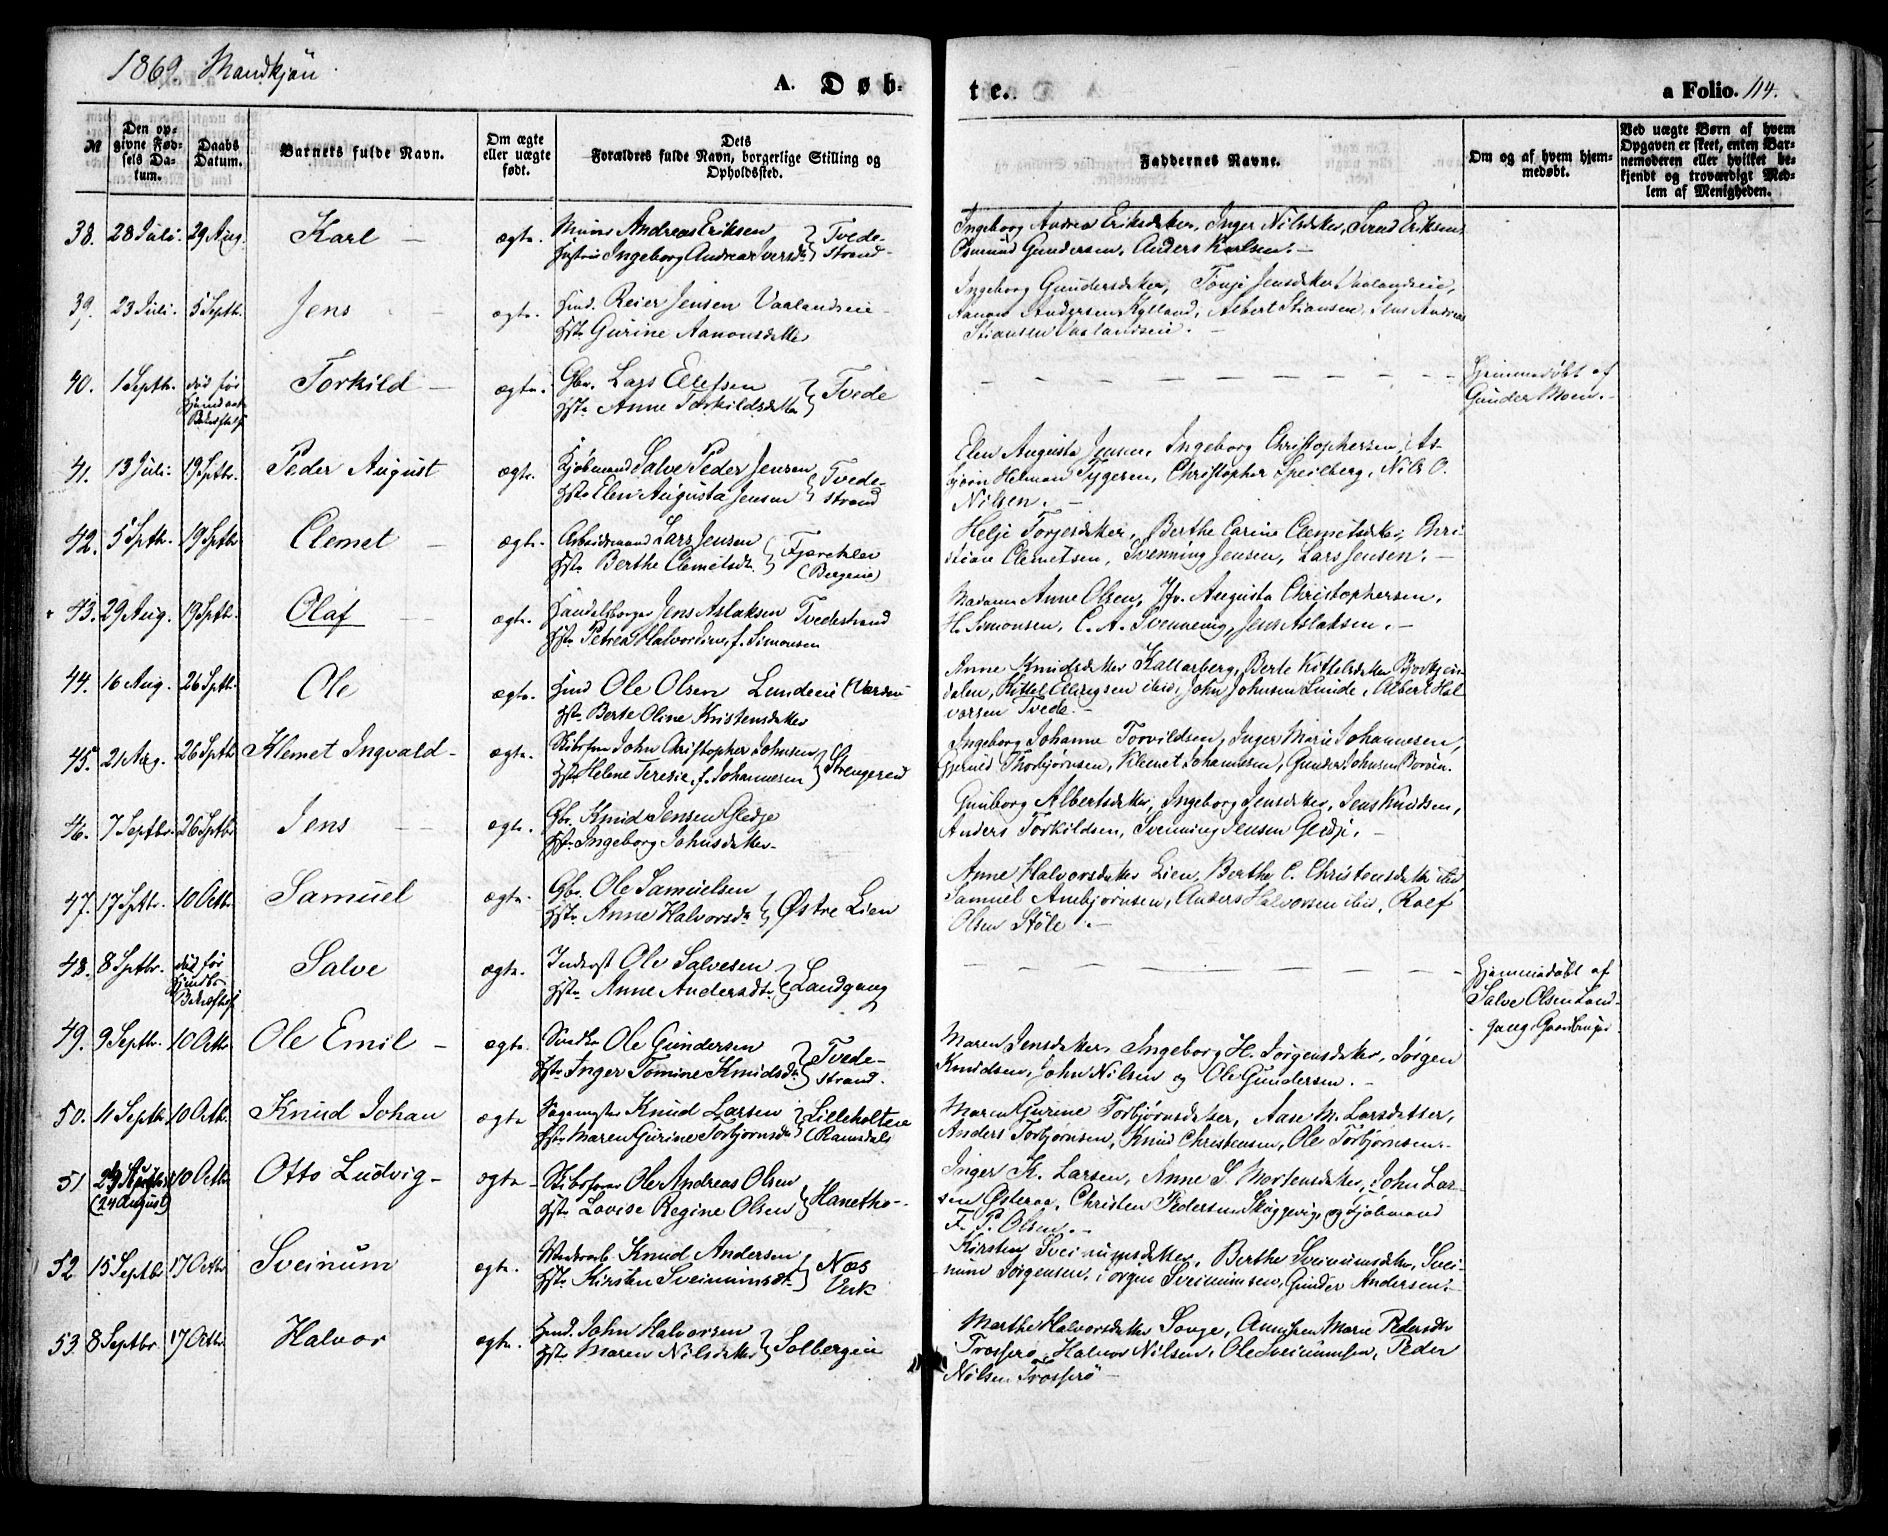 1869 Mandkjön
A. Døb-
te.
a Folio. 114.
№
Den opgivne Fødsels Datum.
Daabs Datum.
Barnets fulde Navn.
Om ægte eller uægte født.
Dets Forældres fulde Navn, borgerlige Stilling og Opholdssted.
Faddernes Navne.
Om og af hvem hjemmedøbt.
Ved uægte Børn af hvem Opgaven er skeet, enten Barnemoderen eller hvilket bekjendt og troværdigt Medlem af Menigheden.
38. 28 Juli. 29 Aug. Karl ægte. Andreas Eriksen Tvede-
Ingeborg Andrea Iversd. strand
Ingeborg Andrea Eriksdatter, Inger Nilsdatter, Svend Eriksen,
Osmund Gundersen, Anders Karlsen.
39. 23 Juli. 5 Septb. Jens ægte. Hmd. Reier Jensen Vaalandseie
Hstr Gurine Aanonsdatter
Ingeborg Gundersdatter, Tonje Jensdatter Vaalandseie,
Aanon Andersen Kylland, Albert Stiansen, Jens Andreas
Stiansen Vaalandseie.
40. 1 Septb. død før Torkild ægte. Gbr. Lars Ellefsen Tvede
Hstr Anne Torkildsdatter
Hjemmedøbt af
Gunder Moen.
41. 13 Juli. 19 Septbr. Peder August ægte. Kjøbmand Salve Peder Jensen Tvede-
Hstr Elen Augusta Jensen strand
Elen Augusta Jensen, Ingeborg Christophersen, As-
bjørn Helman Tygesen, Christopher Speilberg, Nils O.
Nilsen.
42. 5 Septb. 19 Septbr Clemet ægte. Arbeidsmand Lars Jensen
Hstr Berthe Clemetsd. (Bergeeie)
Helje Torjesdatter, Berthe Carine Clemetsdatter, Chri-
stian Clemetsen, Svenning Jensen, Lars Jensen.
43. 29 Aug. 19 Septb. Olaf ægte. Handelsborger Jens Aslaksen Tvedestrand
Hstr Petrea Halvordine, f. Simonsen
Madame Anne Olsen, Jfr. Augusta Christophersen,
H. Simonsen, C. A. Svennevig, Jens Aslaksen.
44. 16 Aug. 26 Septb. Ole ægte. Hmd Ole Olsen Lundeeie
Hstr Berte Oline Kristensdatter
Anne Knudsdatter Kallarberg, Berte Kittelsdatter
dalen, Kittel ibid, John Johnsen Lunde, Albert Hal-
vorsen Tvede.
45. 21 Aug. 26 Septb Klemet Ingvald ægte. John Christopher Johnsen Strengereid
Hstr Helene Teresie, f. Johannesen
Ingeborg Johanne Torvildsen, Inger Marie Johannesen,
Thorbjørnsen, Klemet Johannesen, Gunder Johnsen
46. 7 Septbr. 26 Septbr Jens ægte. Gbr. Knud Jensen Gledje
Hstr Ingeborg Johnsdatter
Gunborg Albertsdatter, Ingeborg Jensdatter, Jens Knudsen,
Anders Torkildsen, Svenning Jensen Gledje.
47. 17 Septbr. 10 Octbr. Samuel ægte. Gbr. Ole Samuelsen Østre Lien
Hstr Anne Halvorsd.
Anne Halvorsdatter Lien, Berthe C. Christensdatter ibid
Samuel Anbjørnsen, Anders Halvorsen ibid, Roef
Olsen Støle.
48. 8 Septbr. død før Salve ægte. Inderst Ole Salvesen Landgang
Hstr Anne Andersdtr.
Hjemmedøbt af
Salve Olsen Land-
gang, Gaardbruger
49. 9 Septbr. 10 Octbr. Ole Emil ægte. Ole Gundersen Tvede-
Hstr Inger Tomine Knudsd. strand.
Maren Jensdatter, Ingeborg H. Jørgensdatter, Jørgen
Knudsen, John Nilsen og Ole Gundersen.
50. 11 Septb. 10 Octb. Knud Johan ægte Sagmester Knud Larsen Lilleholteie
Hstr Maren Gurine Torbjørnsd. (Ramsdals
Maren Gurine Torbjørnsdatter, Aase M. Larsdatter,
Anders Torbjørnsen, Knud Christensen, Ole Torbjørnsen.
51 10 Octbr Otto Ludvig ægte Skibsfører Ole Andreas Olsen Hanetho
(24 August) Hstr Lovise Regine Olsen
Inger K. Larsen, Anne S. Mortensdatter, John Lar-
sen Østeraa, Christen Pedersen Skuggevig og Kjøbmand
F. P. Olsen.
52 15 Septbr 17 Octbr Sveinum ægte. Knud Andersen Næs
Hstr Kirsten Sveinumsdtr. Verk
Kirsten Sveinumsdatter, Berthe Sveinumsdatter, Svei-
num Jørgensen, Jørgen Sveinumsen, Gunder Andersen.
53. 8 Septbr 17 Octbr Halvor ægte. Hmd. John Halvorsen Solbergeie
Hstr Maren Nilsdatter
Marthe Halvorsdatter Songe, Marie Pedersdtr
Halvor Nilsen, Ole Sveinumsen, Peder
Nilsen